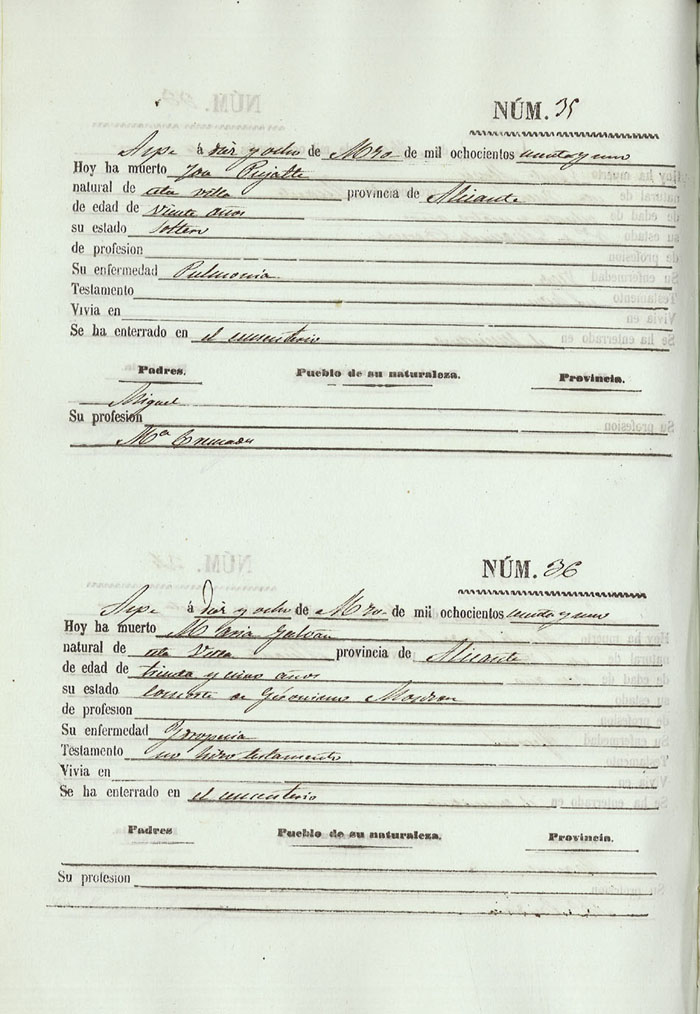 NÚM. 35
Aspe á diez y ocho de Mzo de mil ochocientos
Hoy ha muerto
natural de esta villa provincia de Alicante
de edad de veinte años
su estado soltero
de profesion
Su enfermedad Pulmonia
Testamento
Vivia en
Se ha enterrado en el cementerio
Padres. Pueblo de su naturaleza. Provincia.
Miguel
Su profesion
Mª
NÚM. 36
Aspe á diez y ocho de Mzo de mil ochocientos
Hoy ha muerto Maria Galvañ
natural de esta Villa provincia de Alicante
de edad de treinta y cinco años
su estado consorte de
de profesion
Su enfermedad
Testamento no hizo testamento
Vivia en
Se ha enterrado en el cementerio
Padres Pueblo de su naturaleza. Provincia.
Su profesion